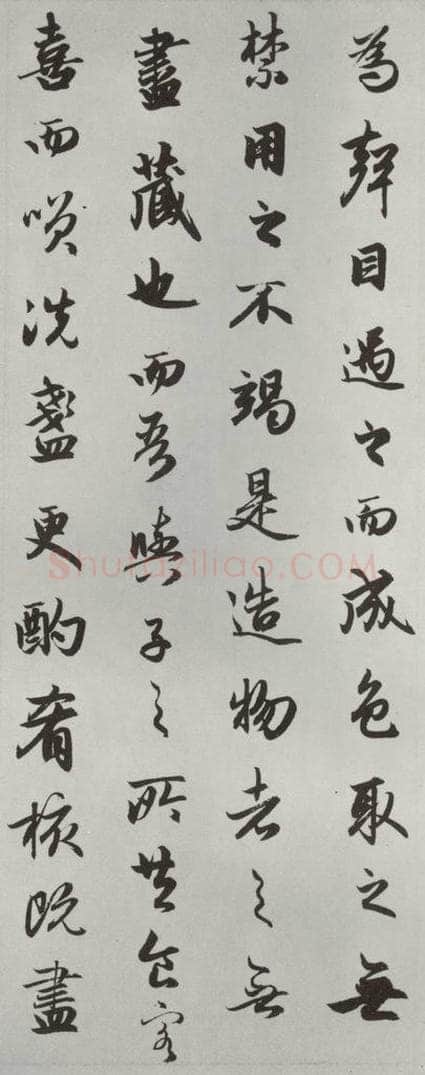 為聲目遇之而成色取之無
禁用之不竭是造物者之無
盡藏也而吾與子之所共食客
喜而咲洗盞更酌肴核既盡
Shufaziliao.COM